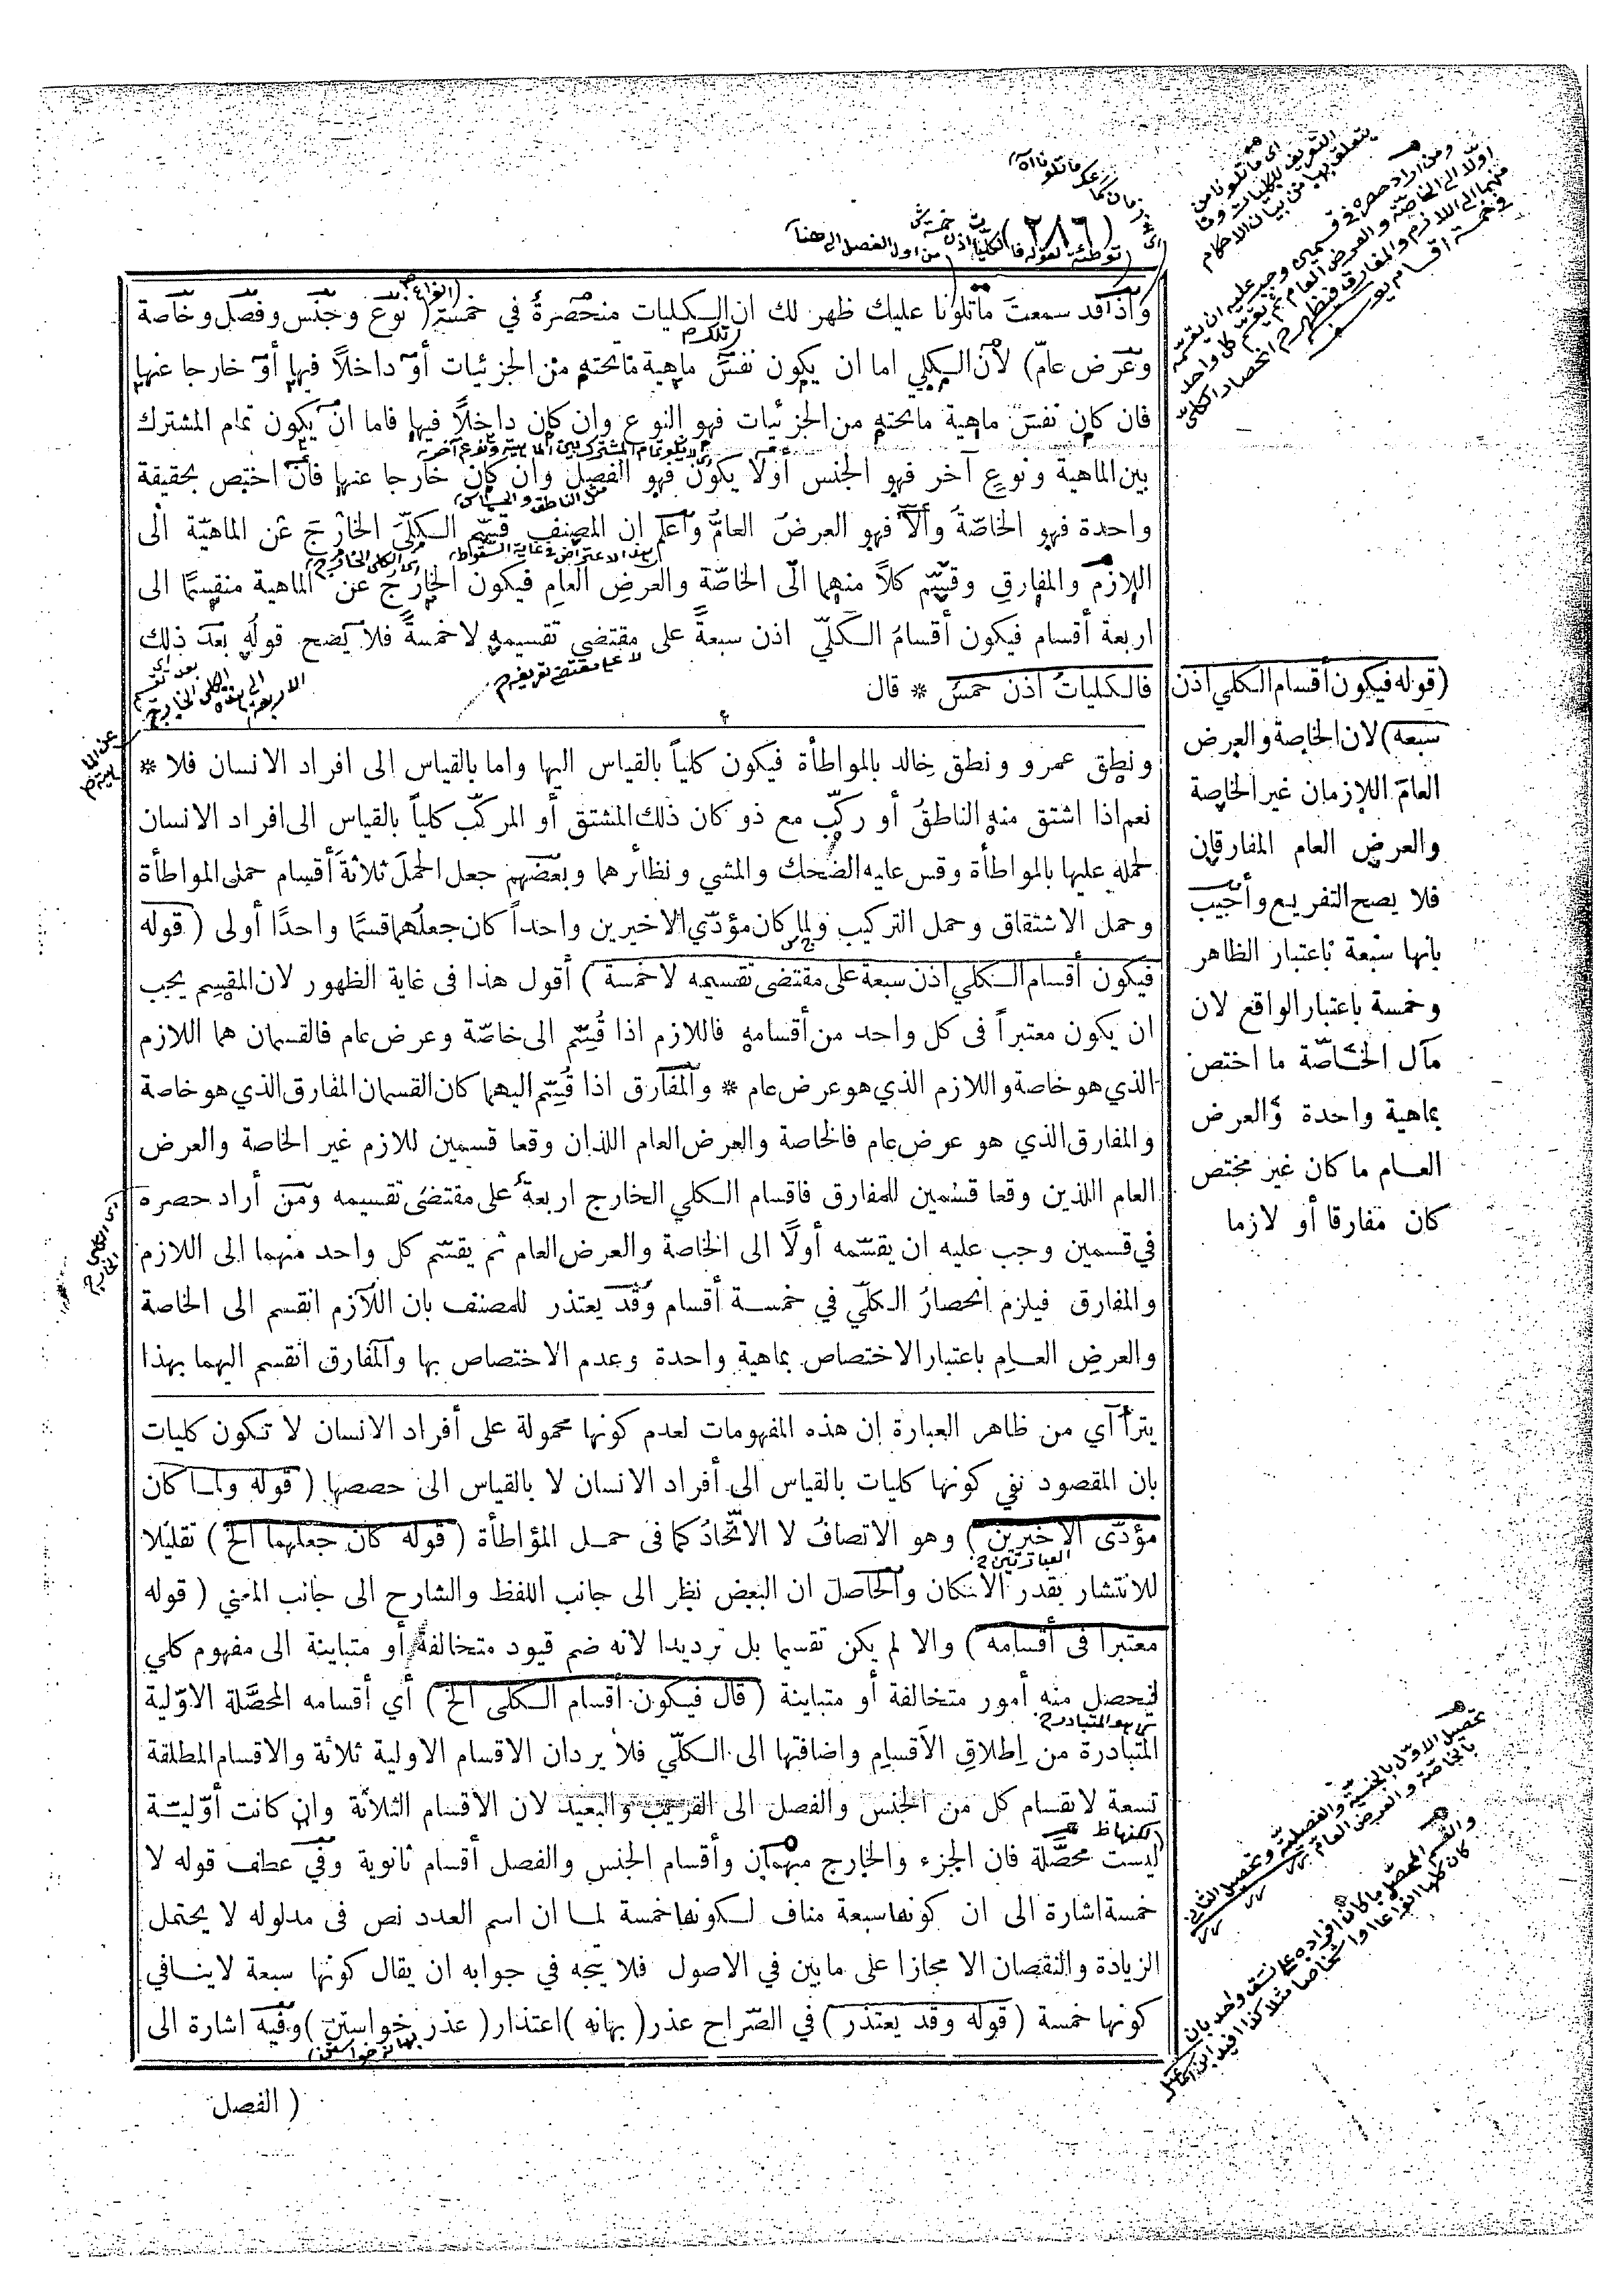 (٢٨٦)
واذ قد سمعت ماتلونا عليك ظهر لك ان الكليات منحصرة في خمسة ( نوع وجنس وفصل وخاصة
وعرض عام) لأن الكلي اما ان يكون نفس ماهية ماتحته من الجزئيات أو داخلاً فيها أو خارجا عنها
فان كان نفس ماهية ماتحته من الجزئيات فهو النوع وان كان داخلاً فيها فاما ان يكون تمام المشترك
بين الماهية ونوع آخر فهو الجنس أولا يكون فهو الفصل وان كان خارجا عنها فان اختص بحقيقة
واحدة فهو الخاصّة وألا فهو العرض العام واعلم ان المصنف قسّم الكلّي الخارج عن الماهيّة الى
اللازم والمفارق وقسّم كلاً منهما الى الخاصّة والعرض العام فيكون الخارج عن الماهية منقسمًا الى
اربعة أقسام فيكون أقسام الكلّي اذن سبعةً على مقتضى تقسيمه لاخمسةً فلا يصح قوله بعد ذلك
فالكليات اذن خمس * قال
ونطق عمرو ونطق خالد بالمواطأة فيكون كلياً بالقياس اليها واما بالقياس الى افراد الانسان فلا *
نعم اذا اشتق منه الناطق أو ركّب مع ذو كان ذلك المشتق أو المركّب كلياً بالقياس الى افراد الانسان
لحمله عليها بالمواطأة وقس عليه الضحك والمشي ونظائرهما وبعضهم جعل الحمل ثلاثة أقسام حمل المواطأة
وحمل الاشتقاق وحمل التركيب ولما كان مؤدّي الاخيرين واحداً كان جعلهما قسمًا واحدًا أولى ( قوله
فيكون أقسام الكلي اذن سبعة على مقتضى تقسيمه لاخمسة ) أقول هذا فى غاية الظهور لان المقسم يجب
ان يكون معتبراً فى كل واحد من أقسامه فاللازم اذا قُسّم الى خاصّة وعرض عام فالقسمان هما اللازم
الذي هو خاصة واللازم الذي هو عرض عام * والمفارق اذا قُسّم اليهما كان القسمان المفارق الذي هو خاصة
والمفارق الذي هو عرض عام فالخاصة والعرض العام اللذان وقعا قسمين للازم غير الخاصة والعرض
العام اللذين وقعا قسمين للمفارق فاقسام الكلي الخارج اربعة على مقتضى تقسيمه ومن أراد حصره
في قسمين وجب عليه ان يقسّمه أولاً الى الخاصة والعرض العام ثم يقسّم كل واحد منهما الى اللازم
والمفارق فيلزم انحصار الكلّي في خمسة أقسام وقد يعتذر للمصنف بان اللازم انقسم الى الخاصة
والعرض العام باعتبار الاختصاص بماهية واحدة وعدم الاختصاص بها والمفارق انقسم اليهما بهذا
يترأآي من ظاهر العبارة ان هذه المفهومات لعدم كونها محمولة على أفراد الانسان لا تكون كليات
بان المقصود نفي كونها كليات بالقياس الى أفراد الانسان لا بالقياس الى حصصها ( قوله ولما كان
مؤدّى الاخيرين ) وهو الاتصاف لا الاتّحاد كما فى حمل المؤاطأة ( قوله كان جعلهما الخ ) تقليلا
للانتشار بقدر الامكان والحاصل ان البعض نظر الى جانب اللفظ والشارح الى جانب المعني ( قوله
معتبرا فى أقسامه ) والا لم يكن تقسيما بل ترديدا لانه ضم قيود متخالفة أو متباينة الى مفهوم كلي
ليحصل منه أمور متخالفة أو متباينة ( قال فيكون أقسام الكلى الخ ) أي أقسامه المحصَّلة الاوّلية
المتبادرة من اطلاق الأقسام واضافتها الى الكلّي فلا يردان الاقسام الاولية ثلاثة والاقسام المطلقة
تسعة لانقسام كل من الجنس والفصل الى القريب والبعيد لان الاقسام الثلاثة وان كانت أوّليّة
ليست محصَّلة فان الجزء والخارج مبهمان وأقسام الجنس والفصل أقسام ثانوية وفي عطف قوله لا
خمسة اشارة الى ان كونها سبعة مناف لكونها خمسة لما ان اسم العدد نص فى مدلوله لا يحتمل
الزيادة والنقصان الا مجازا على مابين في الاصول فلا يتجه في جوابه ان يقال كونها سبعة لاينافي
كونها خمسة ( قوله وقد يعتذر ) في الصّراح عذر ( بهانه ) اعتذار ( عذر خواستن ) وفيه اشارة الى
( الفصل
(قوله فيكون أقسام الكلي اذن
سبعة) لان الخاصة والعرض
العام اللازمان غير الخاصة
والعرض العام المفارقان
فلا يصح التفريع وأجيب
بانها سبعة باعتبار الظاهر
وخمسة باعتبار الواقع لان
مآل الخاصّة ما اختص
بماهية واحدة والعرض
العام ما كان غير مختص
كان مفارقا أو لازما